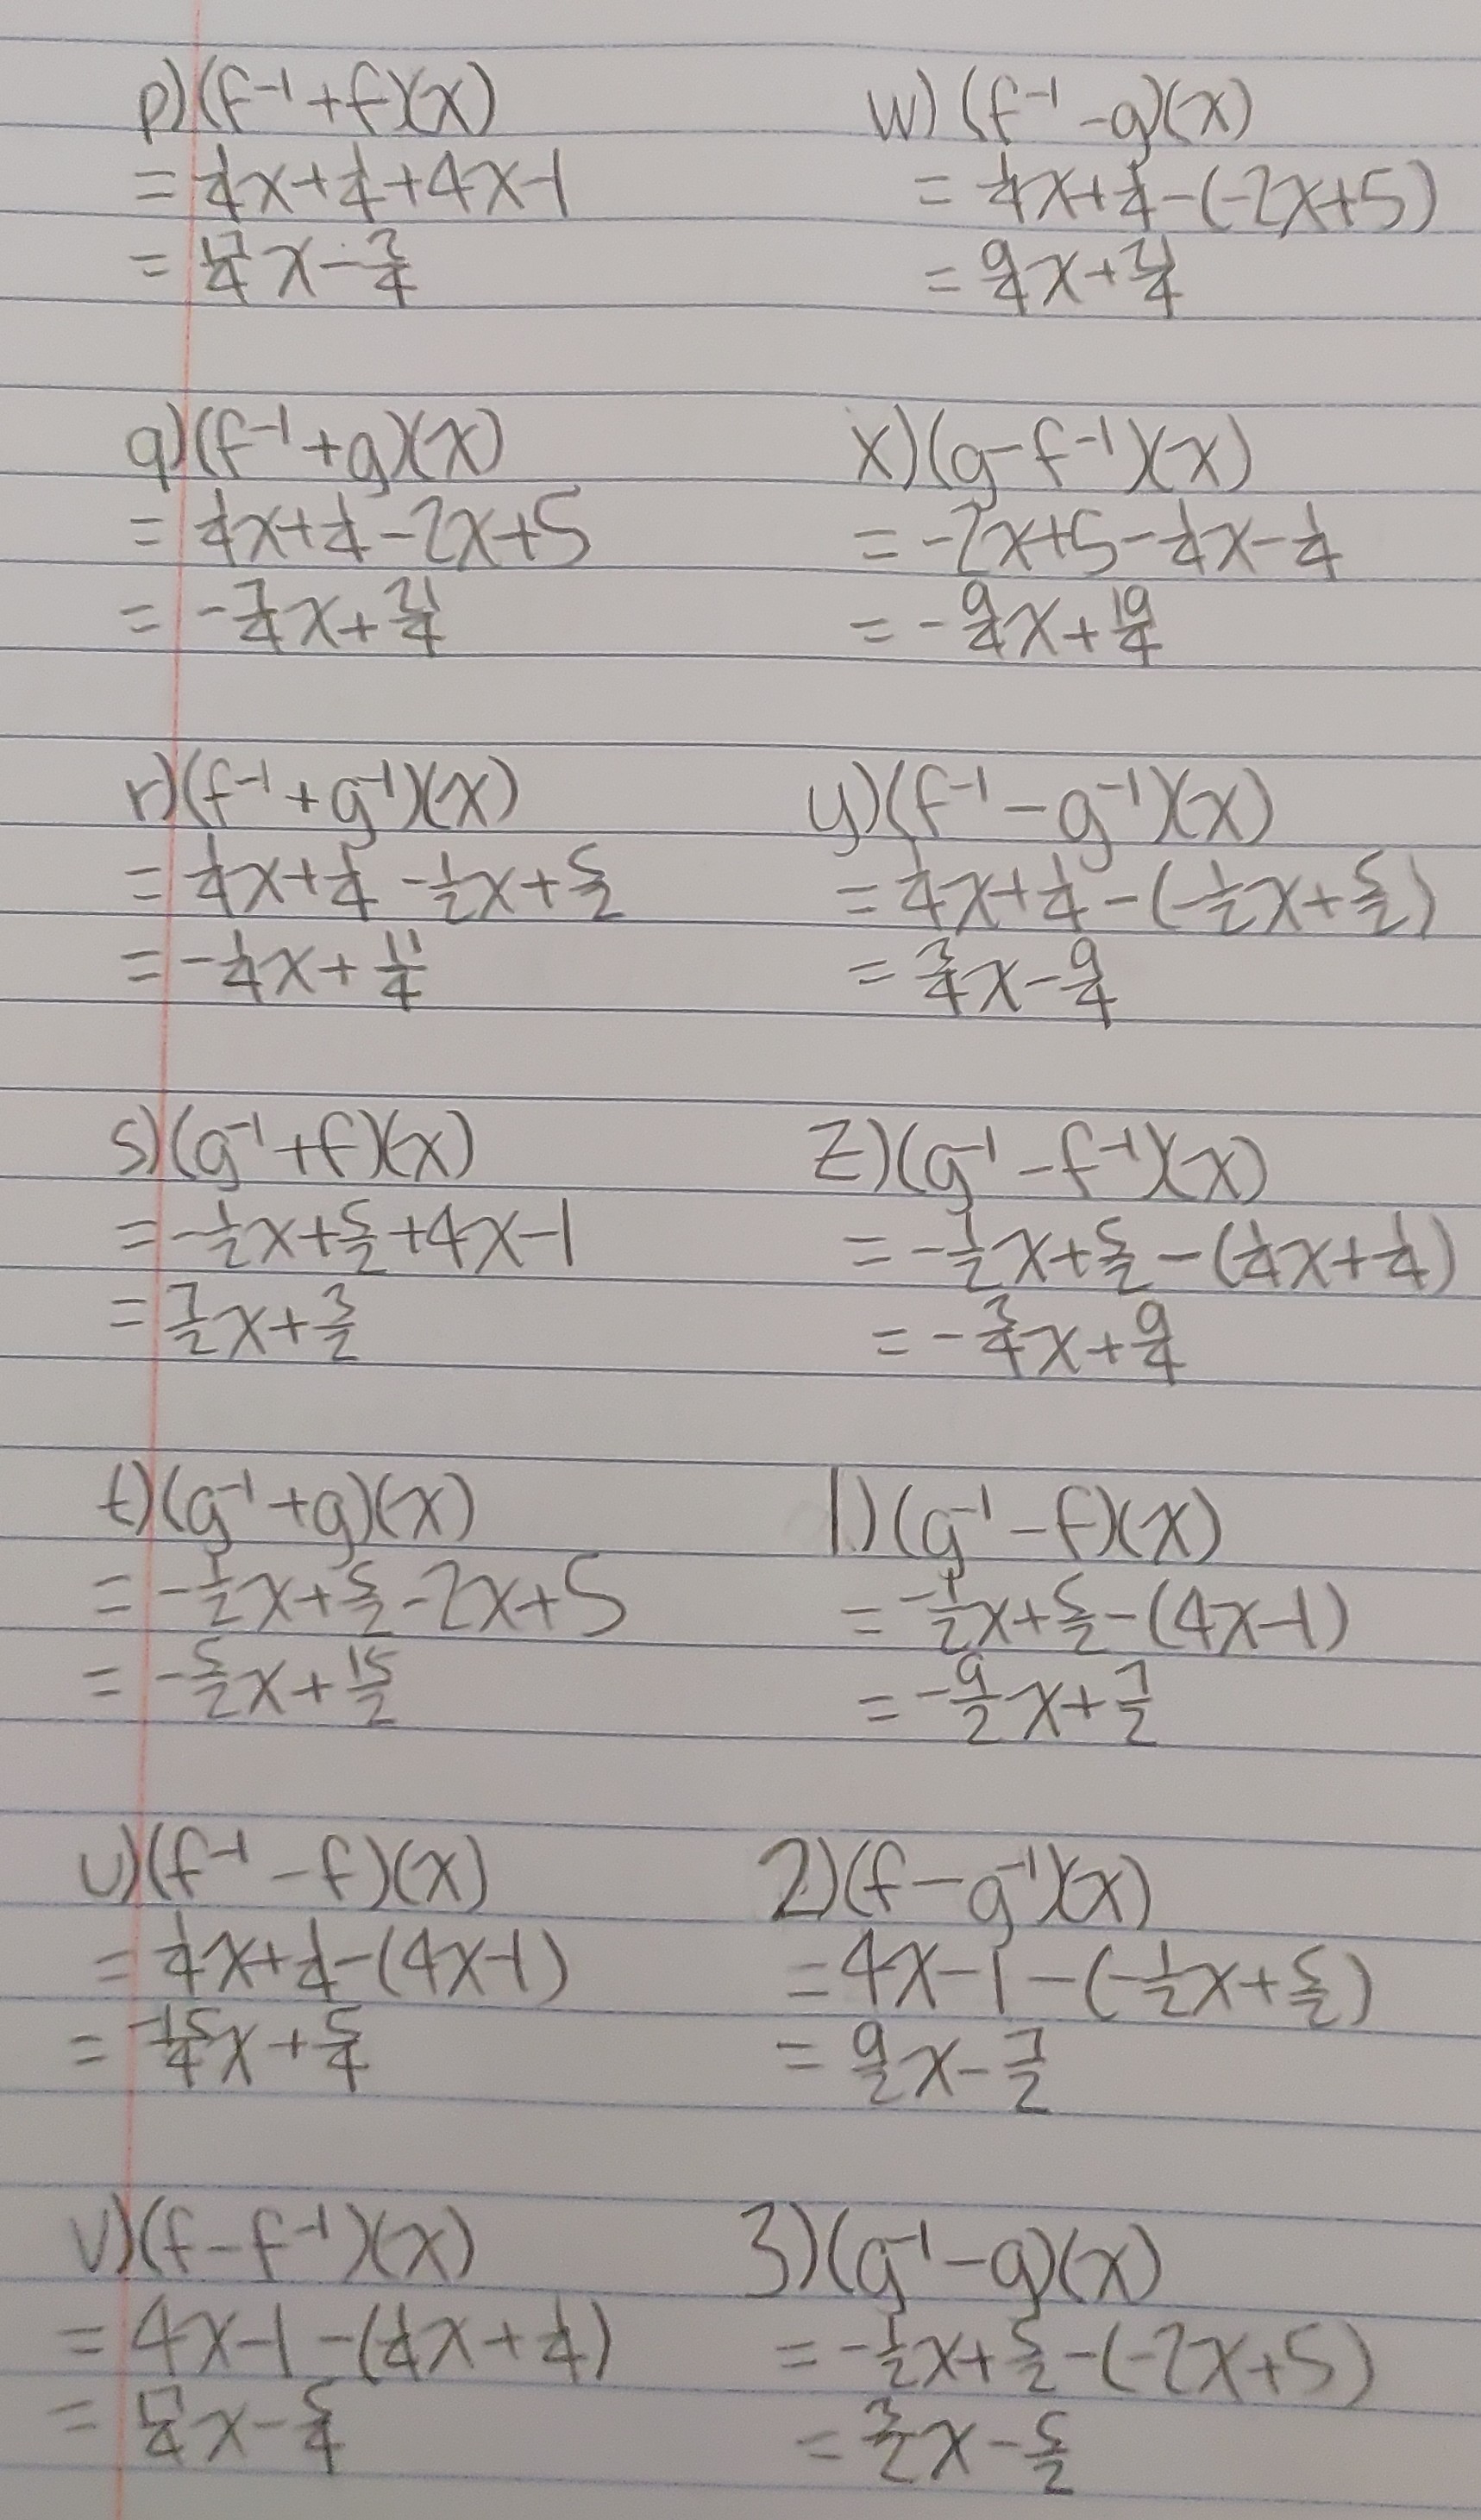 p) (f⁻¹+f)(x)
= 1/4x+1/4+4x-1
= 17/4x-3/4
q) (f⁻¹+g)(x)
= 1/4x+1/4-2x+5
= -7/4x+21/4
r) (f⁻¹+g⁻¹)(x)
= 1/4x+1/4-1/2x+5/2
= -1/4x+11/4
s) (g⁻¹+f)(x)
= -1/2x+5/2+4x-1
= 7/2x+3/2
t) (g⁻¹+g)(x)
= -1/2x+5/2-2x+5
= -5/2x+15/2
u) (f⁻¹-f)(x)
= 1/4x+1/4-(4x-1)
= -15/4x+5/4
v) (f-f⁻¹)(x)
= 4x-1-(1/4x+1/4)
= 17/4x-5/4
w) (f⁻¹-g)(x)
= 1/4x+1/4-(-2x+5)
= 9/4x+21/4
x) (g-f⁻¹)(x)
= -2x+5-1/4x-1/4
= -9/4x+19/4
y) (f⁻¹-g⁻¹)(x)
= 1/4x+1/4-(-1/2x+5/2)
= 3/4x-9/4
z) (g⁻¹-f⁻¹)(x)
= -1/2x+5/2-(1/4x+1/4)
= -3/4x+9/4
1.) (g⁻¹-f)(x)
= -1/2x+5/2-(4x-1)
= -9/2x+7/2
2) (f-g⁻¹)(x)
= 4x-1-(-1/2x+5/2)
= 9/2x-7/2
3) (g⁻¹-g)(x)
= -1/2x+5/2-(-2x+5)
= 3/2x-5/2